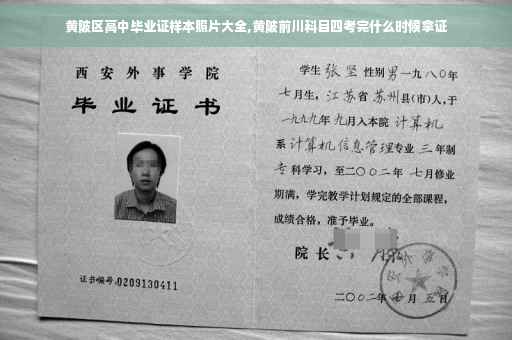 黄陂区高中毕业证样本照片大全,黄陂前川科目四考完什么时候拿证
西安外事学院
毕业证书
证书编号:0209130411
学生 张坚 性别 男 一九八〇年
七月生, 江苏省 苏州县(市)人,于
一九九九年 九月入本院 计算机
系 计算机信息管理专业 三 年制
专科学习,至二〇〇二年 七月修业
期满,学完教学计划规定的全部课程,
成绩合格,准予毕业。
院长
二〇〇二年 月 五日